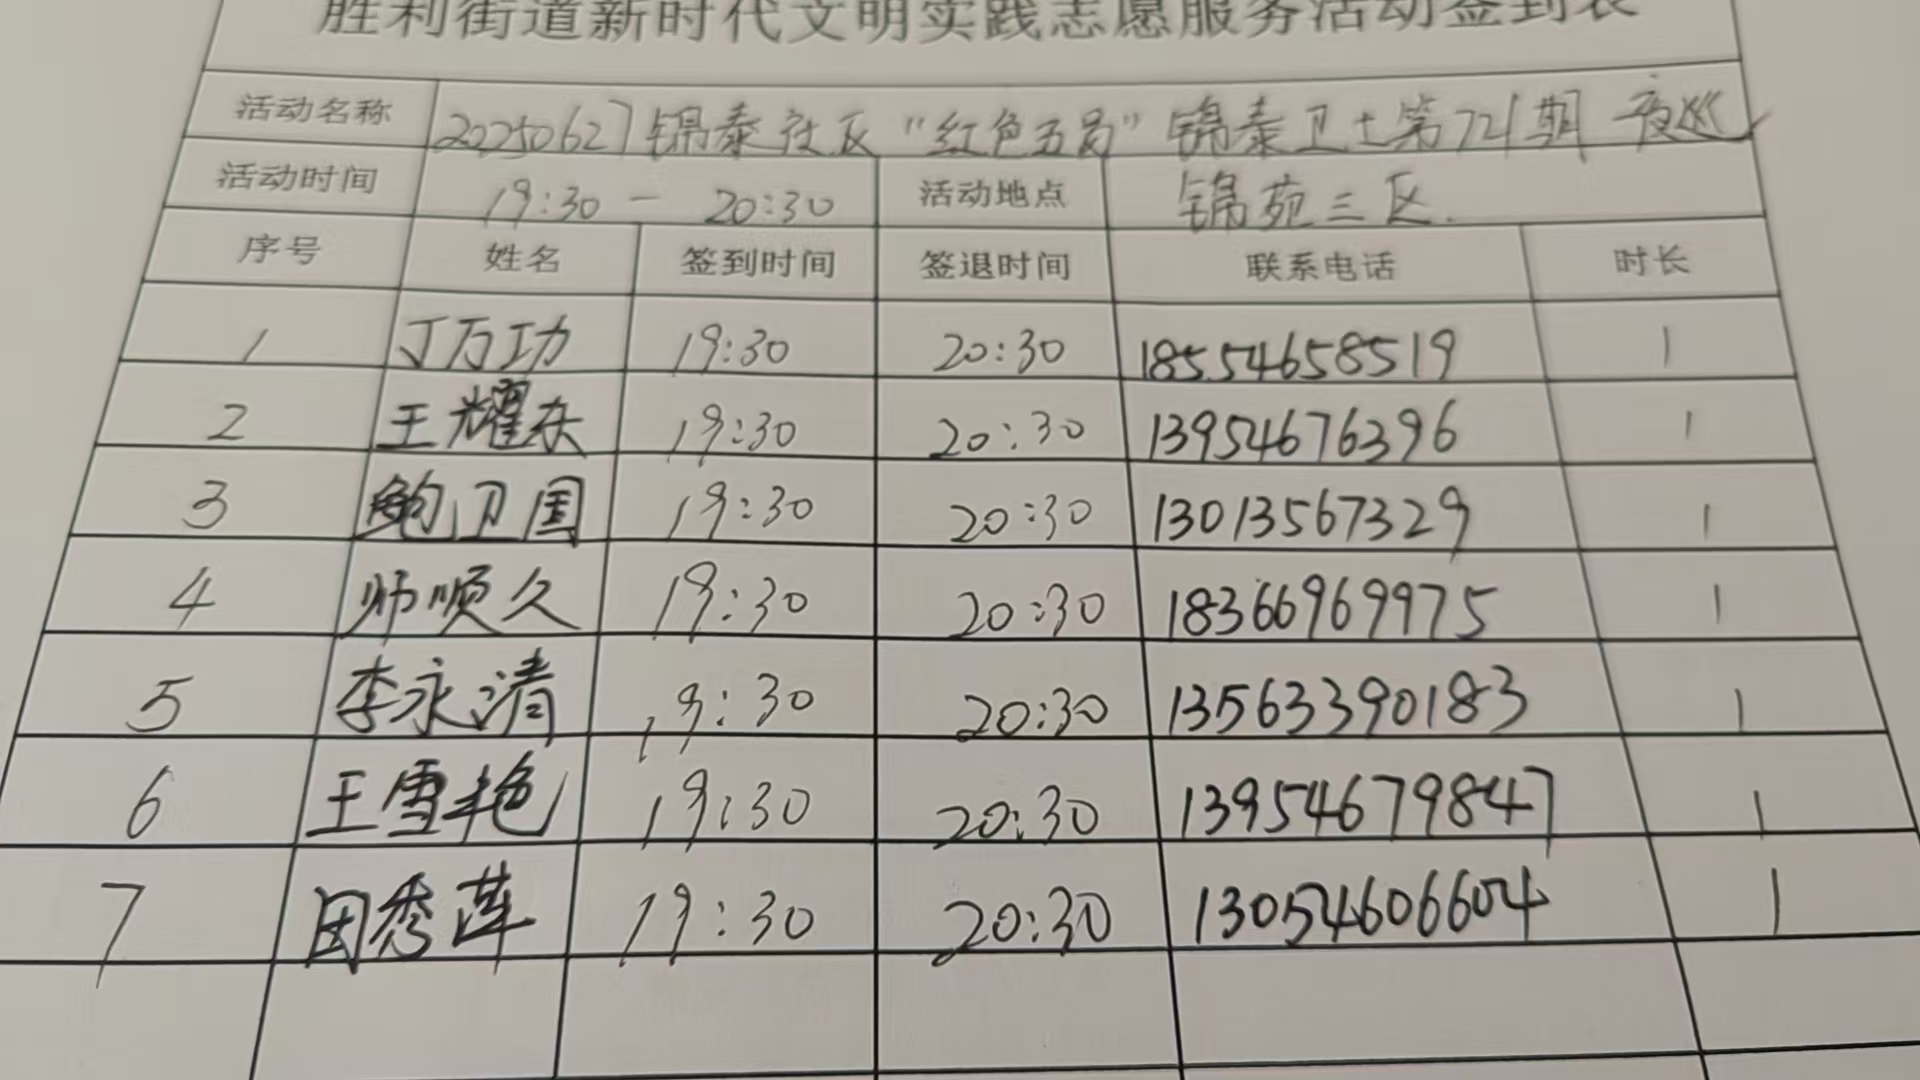 胜利街道新时代文明实践志愿服务活动签到表
活动名称 20250627锦泰社区“红色五局”锦泰卫士第721期 夜巡
活动时间 19:30 - 20:30 活动地点 锦苑三区.
序号 姓名 签到时间 签退时间 联系电话 时长
1 丁万功 19:30 20:30 18554658519 1
2 王耀东 19:30 20:30 13954676396 1
3 鲍卫国 19:30 20:30 13013567329 1
4 师顺久 19:30 20:30 18366969975 1
5 李永清 19:30 20:30 13563390183 1
6 王雪艳 19:30 20:30 13954679847 1
7 田秀莲 19:30 20:30 13054606604 1